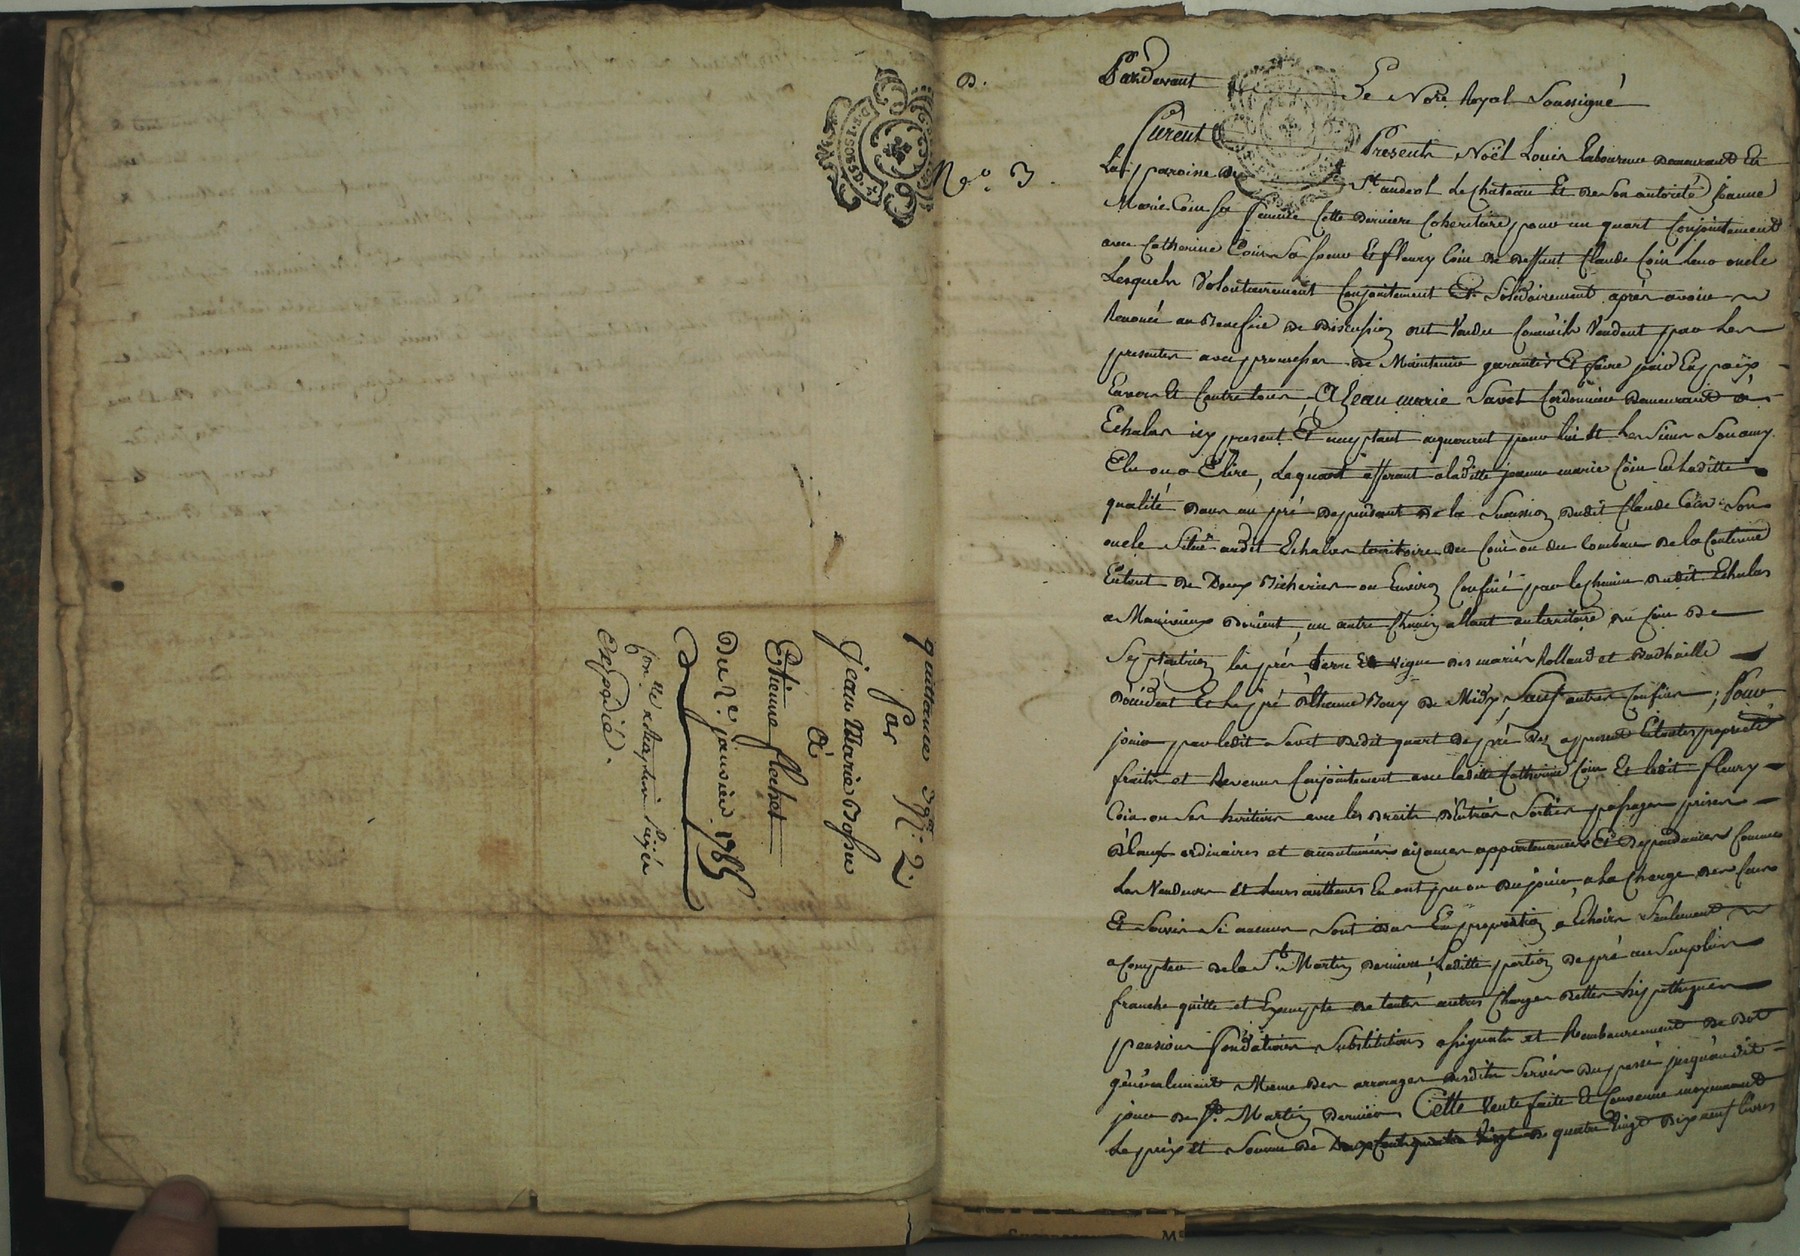 quittance 
Par
jean Marie Bossu
à
Etienne flechet
Du 2e. janvier 1785
expédié.
B.
No. 3.
Pardevant Le Nore. Royal Soussigné
furent Presents Noël Louis laboureur demeurant En
La paroisse de St. andeol le chateau Et de Son autorité Jeanne
Marie Coin Sa femme Cette derniere Coheritiere pour un quart Conjointement
avec Catherine Coin Sa soeur Et fleury Coin de deffunt Claude Coin leur oncle
Lesquels Volontairement Conjointement Et Solidairement après avoir
Renoncé au Benefice de discussion ont Vendu Comm'ils Vendent par les
presentes avec promesse de Maintenir garantir Et faire jouir En paix
Envers Et Contre tous A Jean marie Savet Cordonnier demeurant à
Echalas icy present Et acceptant acquereur pour lui Et les Siens Son amy
Elu ou a Elire, le quart afferant a laditte jeanne marie Coin En laditte
qualité dans un pré dependant de la Succession dudit Claude Coin Son
oncle Situé audit Echalas territoire du Coin ou du lombard de la Contenue
Entout de Deux Bicherées ou Environ Confiné par le chemin dudit Echalas
a Manivieux d'orient, un autre Chemin allant au territoire du Coin de
Septentrion les pré terre Et vigne des mariés Rolland et Badhaille
d'occident Et le pré d'Etienne Bony de Midy, Sauf autres Confins; Pour
jouir par ledit Savet dudit quart de pré dez apresent En toutes propriété
fruits et Revenus Conjointement avec laditte Catherine Coin Et ledit fleury
Coin ou Ses heritiers avec les droits d'Entrées Sorties passages prises
d'Eaux ordinaires et accoutumées aisances appartenances Et dependances Comme
Les Vendeurs Et leurs autheurs En ont pu ou du jouir, a la Charge des Cens
Et Servis Si aucuns Sont dus En proportion a Echoir Seulement
a Compter de la St. Martin derniere, laditte portion de pré au Surplus
franche quitte et Exempte de toutes autres Charges dettes hipotheques
pensions fondations Substitutions assignats et Remboursement de Dot
généralement Meme des arrerages desdits Servis du passé jusqu'audit
jour de St. Martin dernier Cette Vente faite Et Convenue moyennant
Le prix et Somme de quatre Vingt dix neuf livres